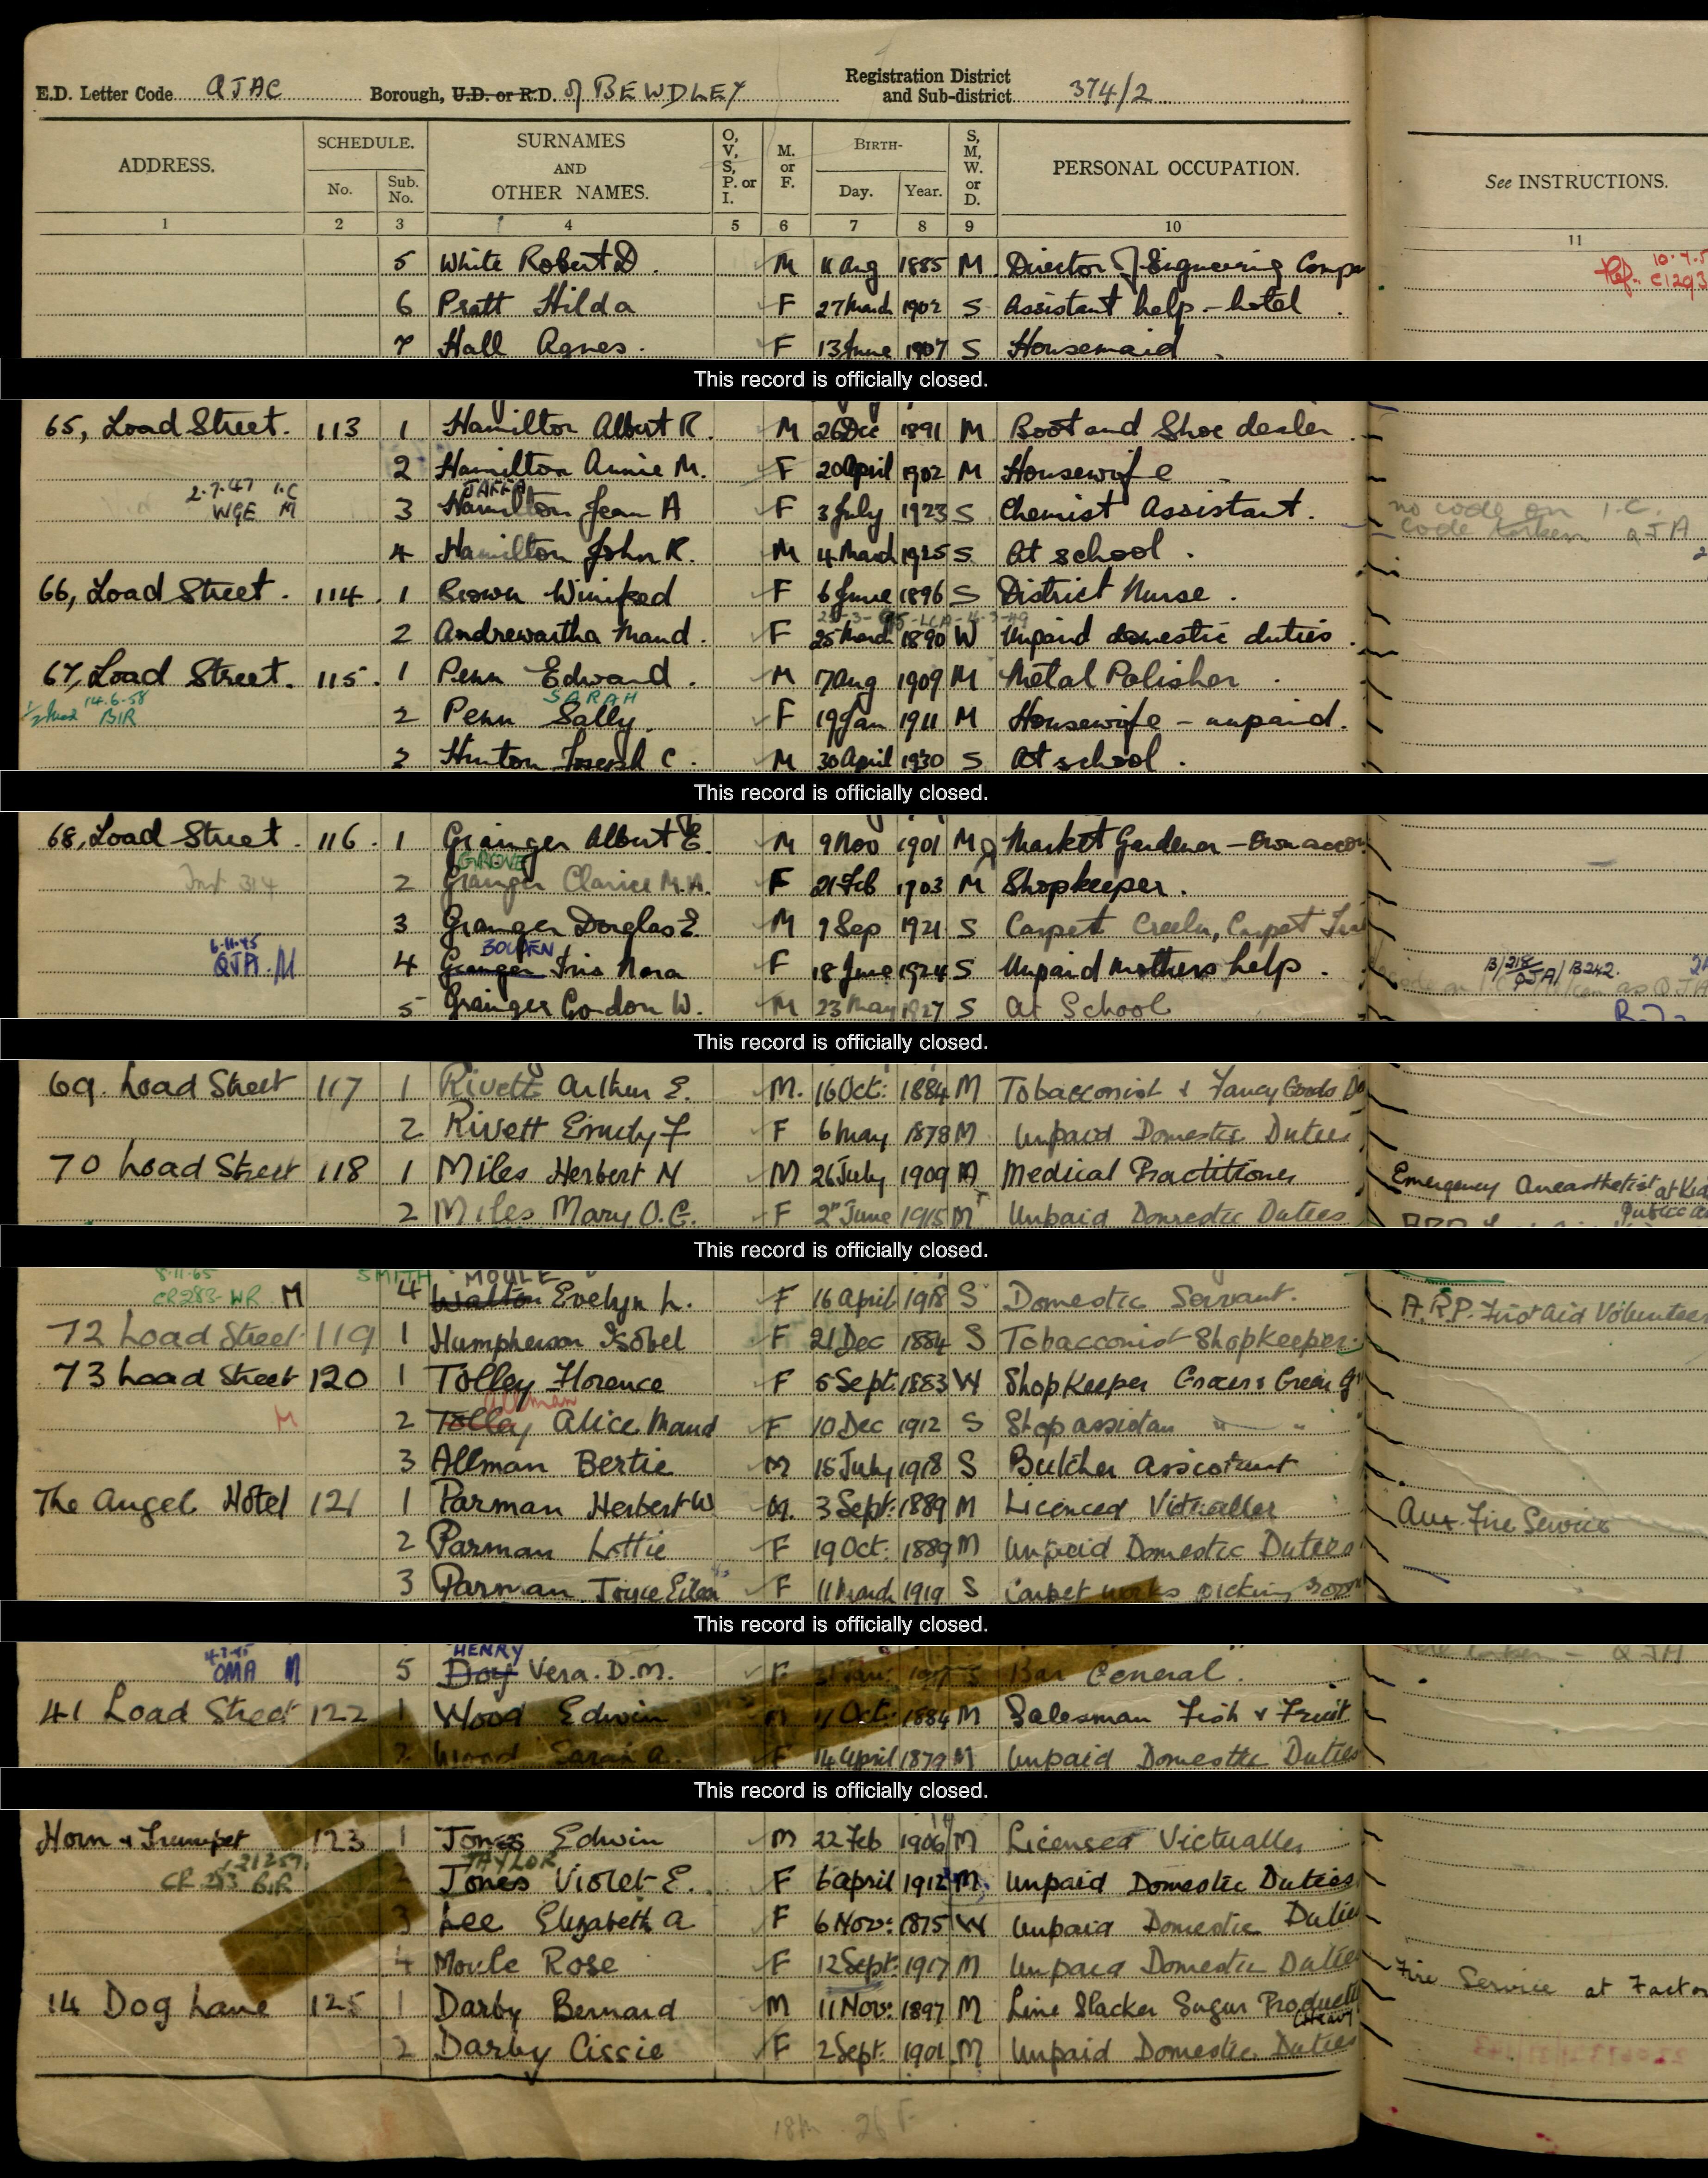 E.D. Letter Code QJAC Borough, U.D. or R.D. of BEWDLEY Registration District and Sub-district 374/2
ADDRESS. SCHEDULE. No. Sub. No. SURNAMES AND OTHER NAMES. O, V, S, P. or I. M. or F. BIRTH- Day. Year. S, M, W. or D. PERSONAL OCCUPATION. See INSTRUCTIONS.
1 2 3 4 5 6 7 8 9 10 11
5 White Robert D. M 11 Aug 1885 M Director of Engineering 10.7.5
6 Pratt Hilda F 27 March 1902 S Assistant help - hotel. Ref. C1293
7 Hall Agnes. F 13 June 1907 S Housemaid
This record is officially closed.
65, Load Street. 113 1 Hamilton Albert R. M 26 Dec 1891 M Boot and Shoe dealer.
2 Hamilton Annie M. F 20 April 1902 M Housewife
2.7.47 I.C JAFFA
WGE M 3 Hamilton Jean A F 3 July 1923 S Chemist Assistant. no code on I.C.
code taken QJA
4 Hamilton John R. M 4 March 1925 S At school.
66, Load Street. 114. 1 Brown Winifred F 6 June 1896 S District Nurse.
2 Andrewartha Maud. F 25 March 1890 W Unpaid domestic duties
67, Load Street. 115. 1 Penn Edward. M 7 Aug 1909 M Metal Polisher.
14.6.58 SARAH
BIR 2 Penn Sally. F 19 Jan 1911 M Housewife - unpaid.
3 Hinton Joseph C. M 30 April 1930 S At school.
This record is officially closed.
68, Load Street. 116. 1 Grainger Albert E. M 9 Nov 1901 M Market Gardener - Own accou
GROVE
2 Grainger Clarice M.A. F 21 Feb 1903 M Shopkeeper.
3 Grainger Douglas E. M 9 Sep 1921 S Carpet Creeler, Carpet
6.11.45 BOLDEN
QJA. M 4 Grainger Iris Nora F 18 June 1924 S Unpaid mothers help. B/218/QJA/B242.
5 Grainger Gordon W. M 23 May 1927 S At School
This record is officially closed.
69. Load Street 117 1 Rivett Arthur E. M. 16 Oct: 1884 M Tobacconist & Fancy Goods De
2 Rivett Emily F F 6 May 1878 M Unpaid Domestic Duties
70 Load Street 118 1 Miles Herbert N M 26 July 1909 M Medical Practitioner Emergency Anaesthetist at Kid
2 Miles Mary O.G. F 2nd June 1915 M Unpaid Domestic Duties
This record is officially closed.
8.11.65 SMITH MOULE
CR283 WR M 4 Walton Evelyn L. F 16 April 1918 S Domestic Servant. A.R.P. First Aid Volunteer
72 Load Street 119 1 Humpherson Isobel F 21 Dec 1884 S Tobacconist Shopkeeper
73 Load Street 120 1 Tolley Florence F 5 Sept: 1883 W Shop Keeper Grocer & Green Gr
Allman
M 2 Tolley Alice Maud F 10 Dec 1912 S Shop assistan " "
3 Allman Bertie M 15 July 1918 S Butcher assistant
The Angel Hotel 121 1 Parman Herbert W M. 3 Sept: 1889 M Licenced Victualler Aux. Fire Service
2 Parman Lottie F 19 Oct: 1889 M Unpaid Domestic Duties
3 Parman Joyce Eileen F 11 March 1919 S Carpet works picking room
This record is officially closed.
4.7.45 HENRY
OMA M 5 Day Vera. D.M. F S Bar General.
41 Load Street 122 1 Wood Edwin M 11 Oct: 1884 M Salesman Fish & Fruit
2 Wood Sarah A. F 14 April 1879 M Unpaid Domestic Duties
This record is officially closed.
Horn & Trumpet 123 1 Jones Edwin M 22 Feb 1906 M Licensed Victualler
TAYLOR
CR 283 BIR 2 Jones Violet E. F 6 April 1912 M. Unpaid Domestic Duties
3 Lee Elizabeth A F 6 Nov: 1875 W Unpaid Domestic Duties
4 Moule Rose F 12 Sept: 1917 M Unpaid Domestic Duties
14 Dog Lane 125 1 Darby Bernard M 11 Nov: 1897 M Lime Slacker Sugar Production (Heavy) Fire Service at Factor
2 Darby Cissie F 2 Sept. 1901 M Unpaid Domestic Duties
18M 26 F